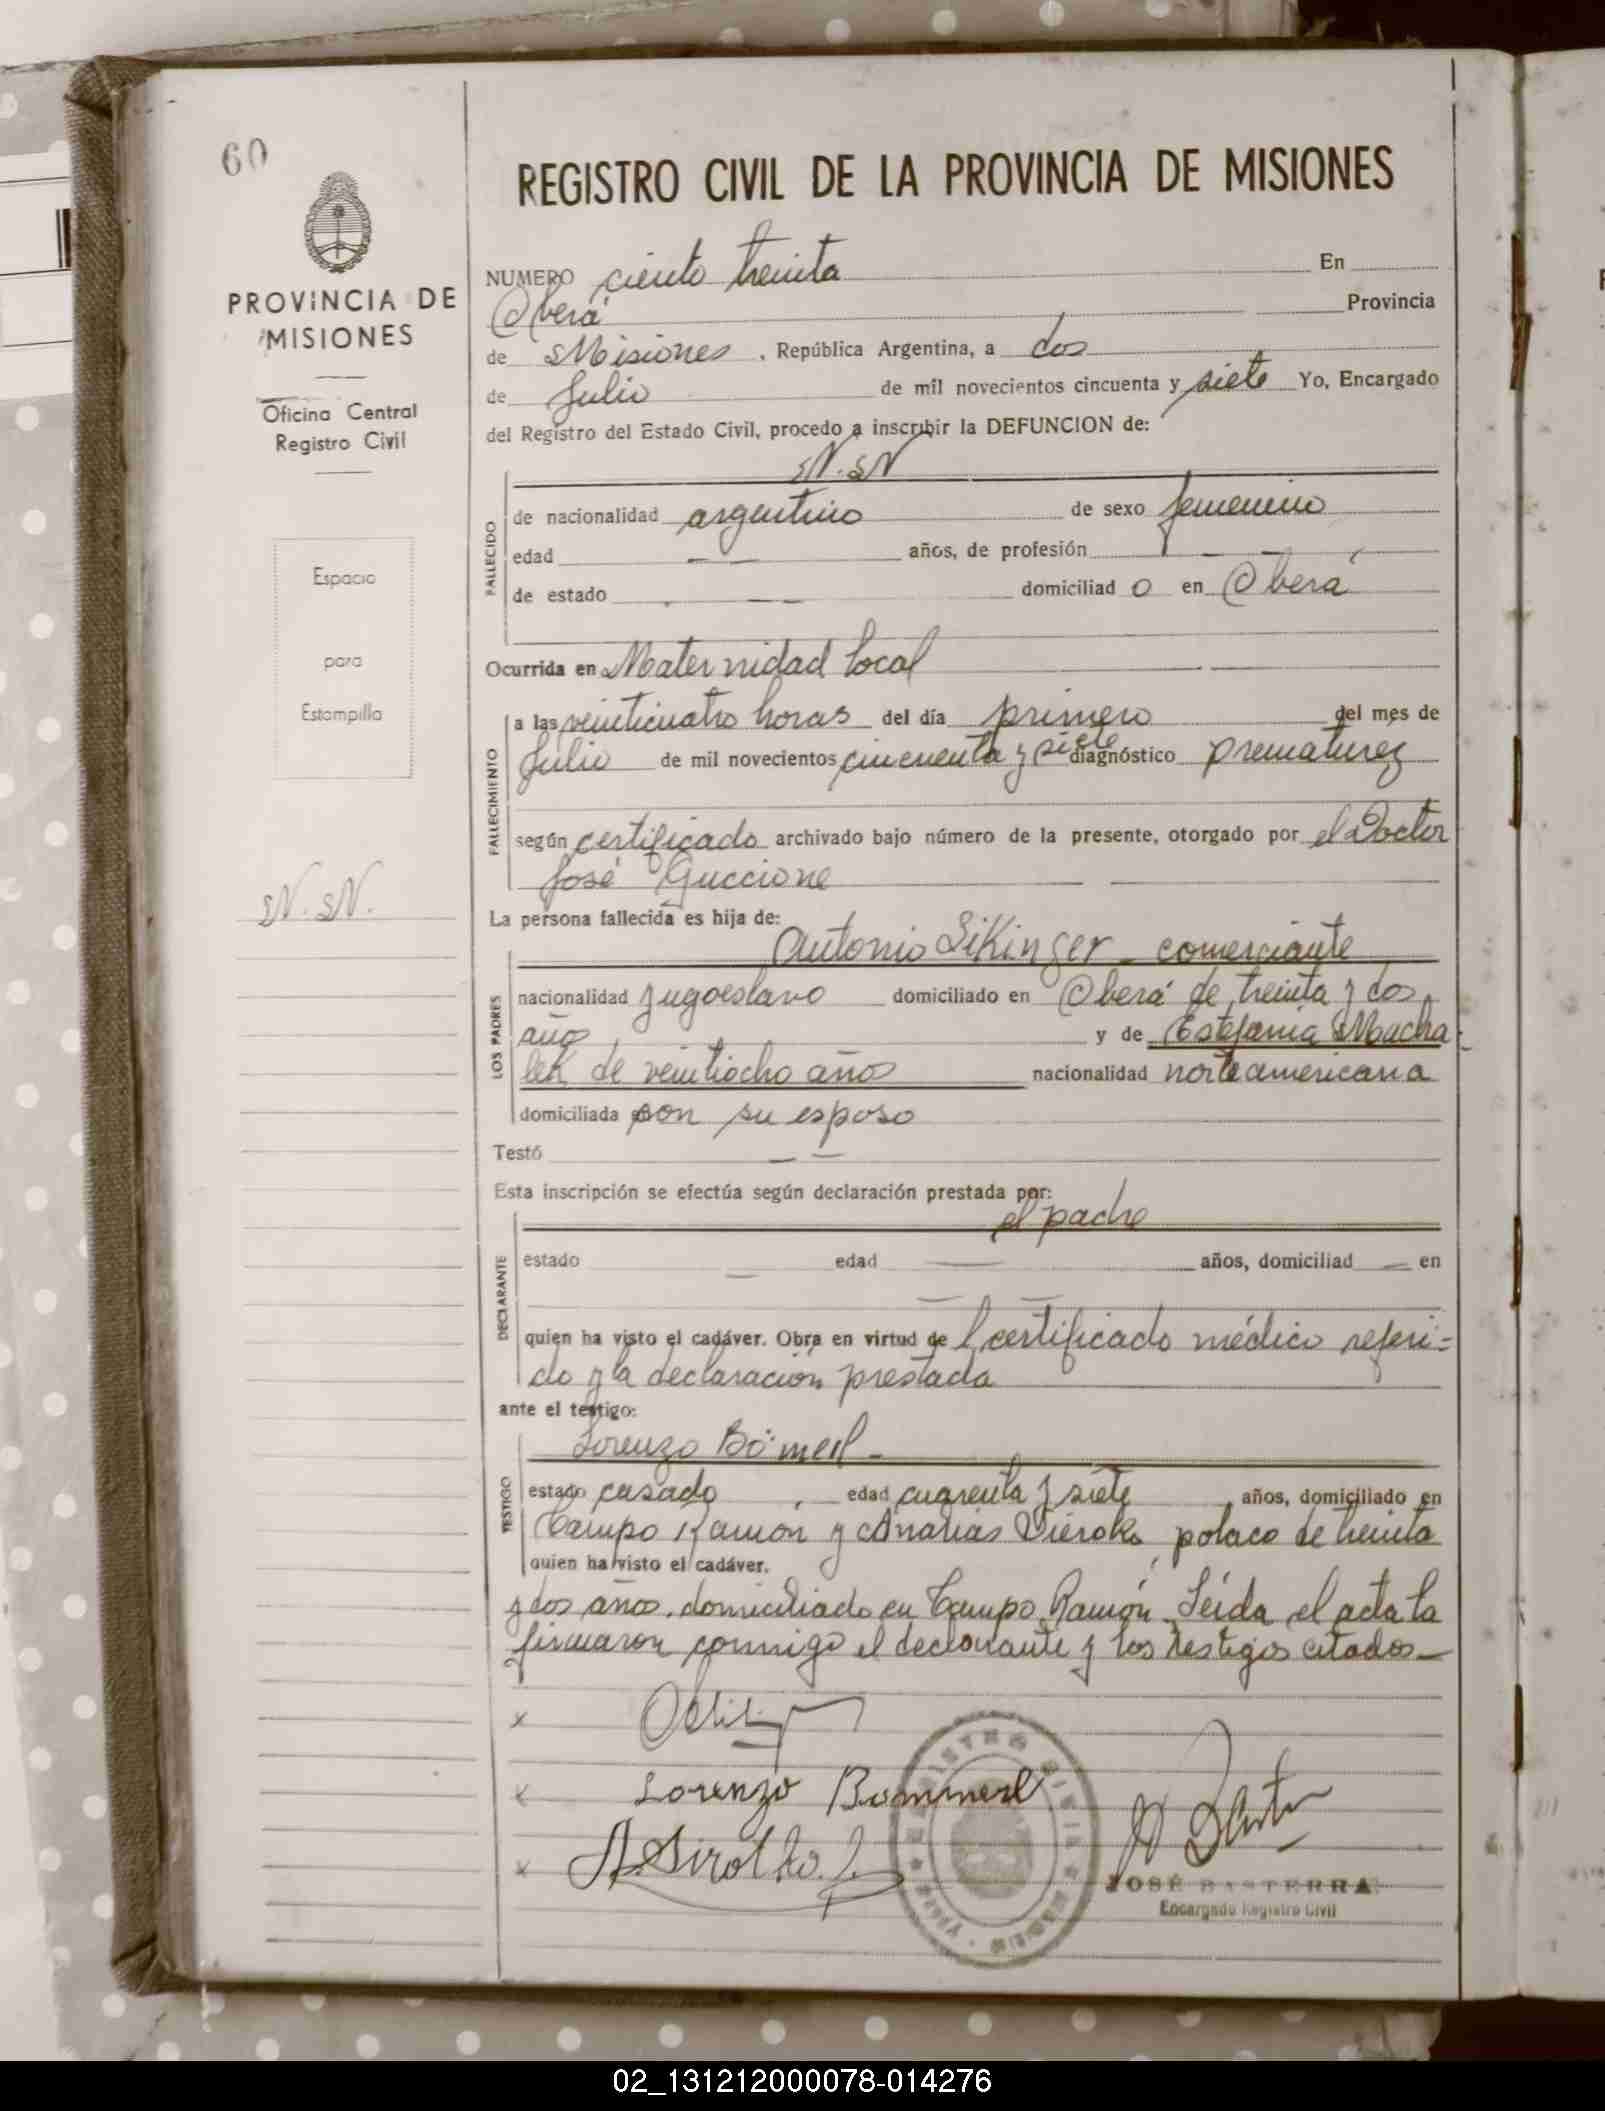 60
PROVINCIA DE
MISIONES
Oficina Central
Registro Civil
Espacio
para
Estampilla
N. N.
REGISTRO CIVIL DE LA PROVINCIA DE MISIONES
NUMERO ciento treinta En
Oberá Provincia
de Misiones , República Argentina, a dos
de Julio de mil novecientos cincuenta y siete Yo, Encargado
del Registro del Estado Civil, procedo a inscribir la DEFUNCION de:
N. N
FALLECIDO
de nacionalidad argentino de sexo femenino
edad — — años, de profesión — —
de estado — — domiciliad o en Oberá
Ocurrida en Maternidad local
FALLECIMIENTO
a las veinticuatro horas del día primero del mes de
Julio de mil novecientos cincuenta y siete diagnóstico prematurez
según certificado archivado bajo número de la presente, otorgado por el Doctor
José Guccione
La persona fallecida es hija de:
LOS PADRES
Antonio Sikinger - comerciante
nacionalidad yugoeslavo domiciliado en Oberá de treinta y dos
año y de Estefania Macha-
lek de veintiocho años nacionalidad norteamericana
domiciliada con su esposo
Testó — —
Esta inscripción se efectúa según declaración prestada por:
el padre
DECLARANTE
estado — edad — años, domiciliad — en
— —
quien ha visto el cadáver. Obra en virtud de l certificado médico referi=
do y la declaración prestada
ante el testigo:
Lorenzo Bömerl -
TESTIGO
estado casado edad cuarenta y siete años, domiciliado en
Campo Ramón y Ananias polaco de treinta
quien ha visto el cadáver.
y dos años, domiciliado en Campo Ramón. Leida el acta la
firmaron conmigo el declarante y los testigos citados -
x
x Lorenzo Bommerl
x A. Sirotko
REGISTRO CIVIL
JOSÉ BASTERRA
Encargado Registro Civil
02_131212000078-014276